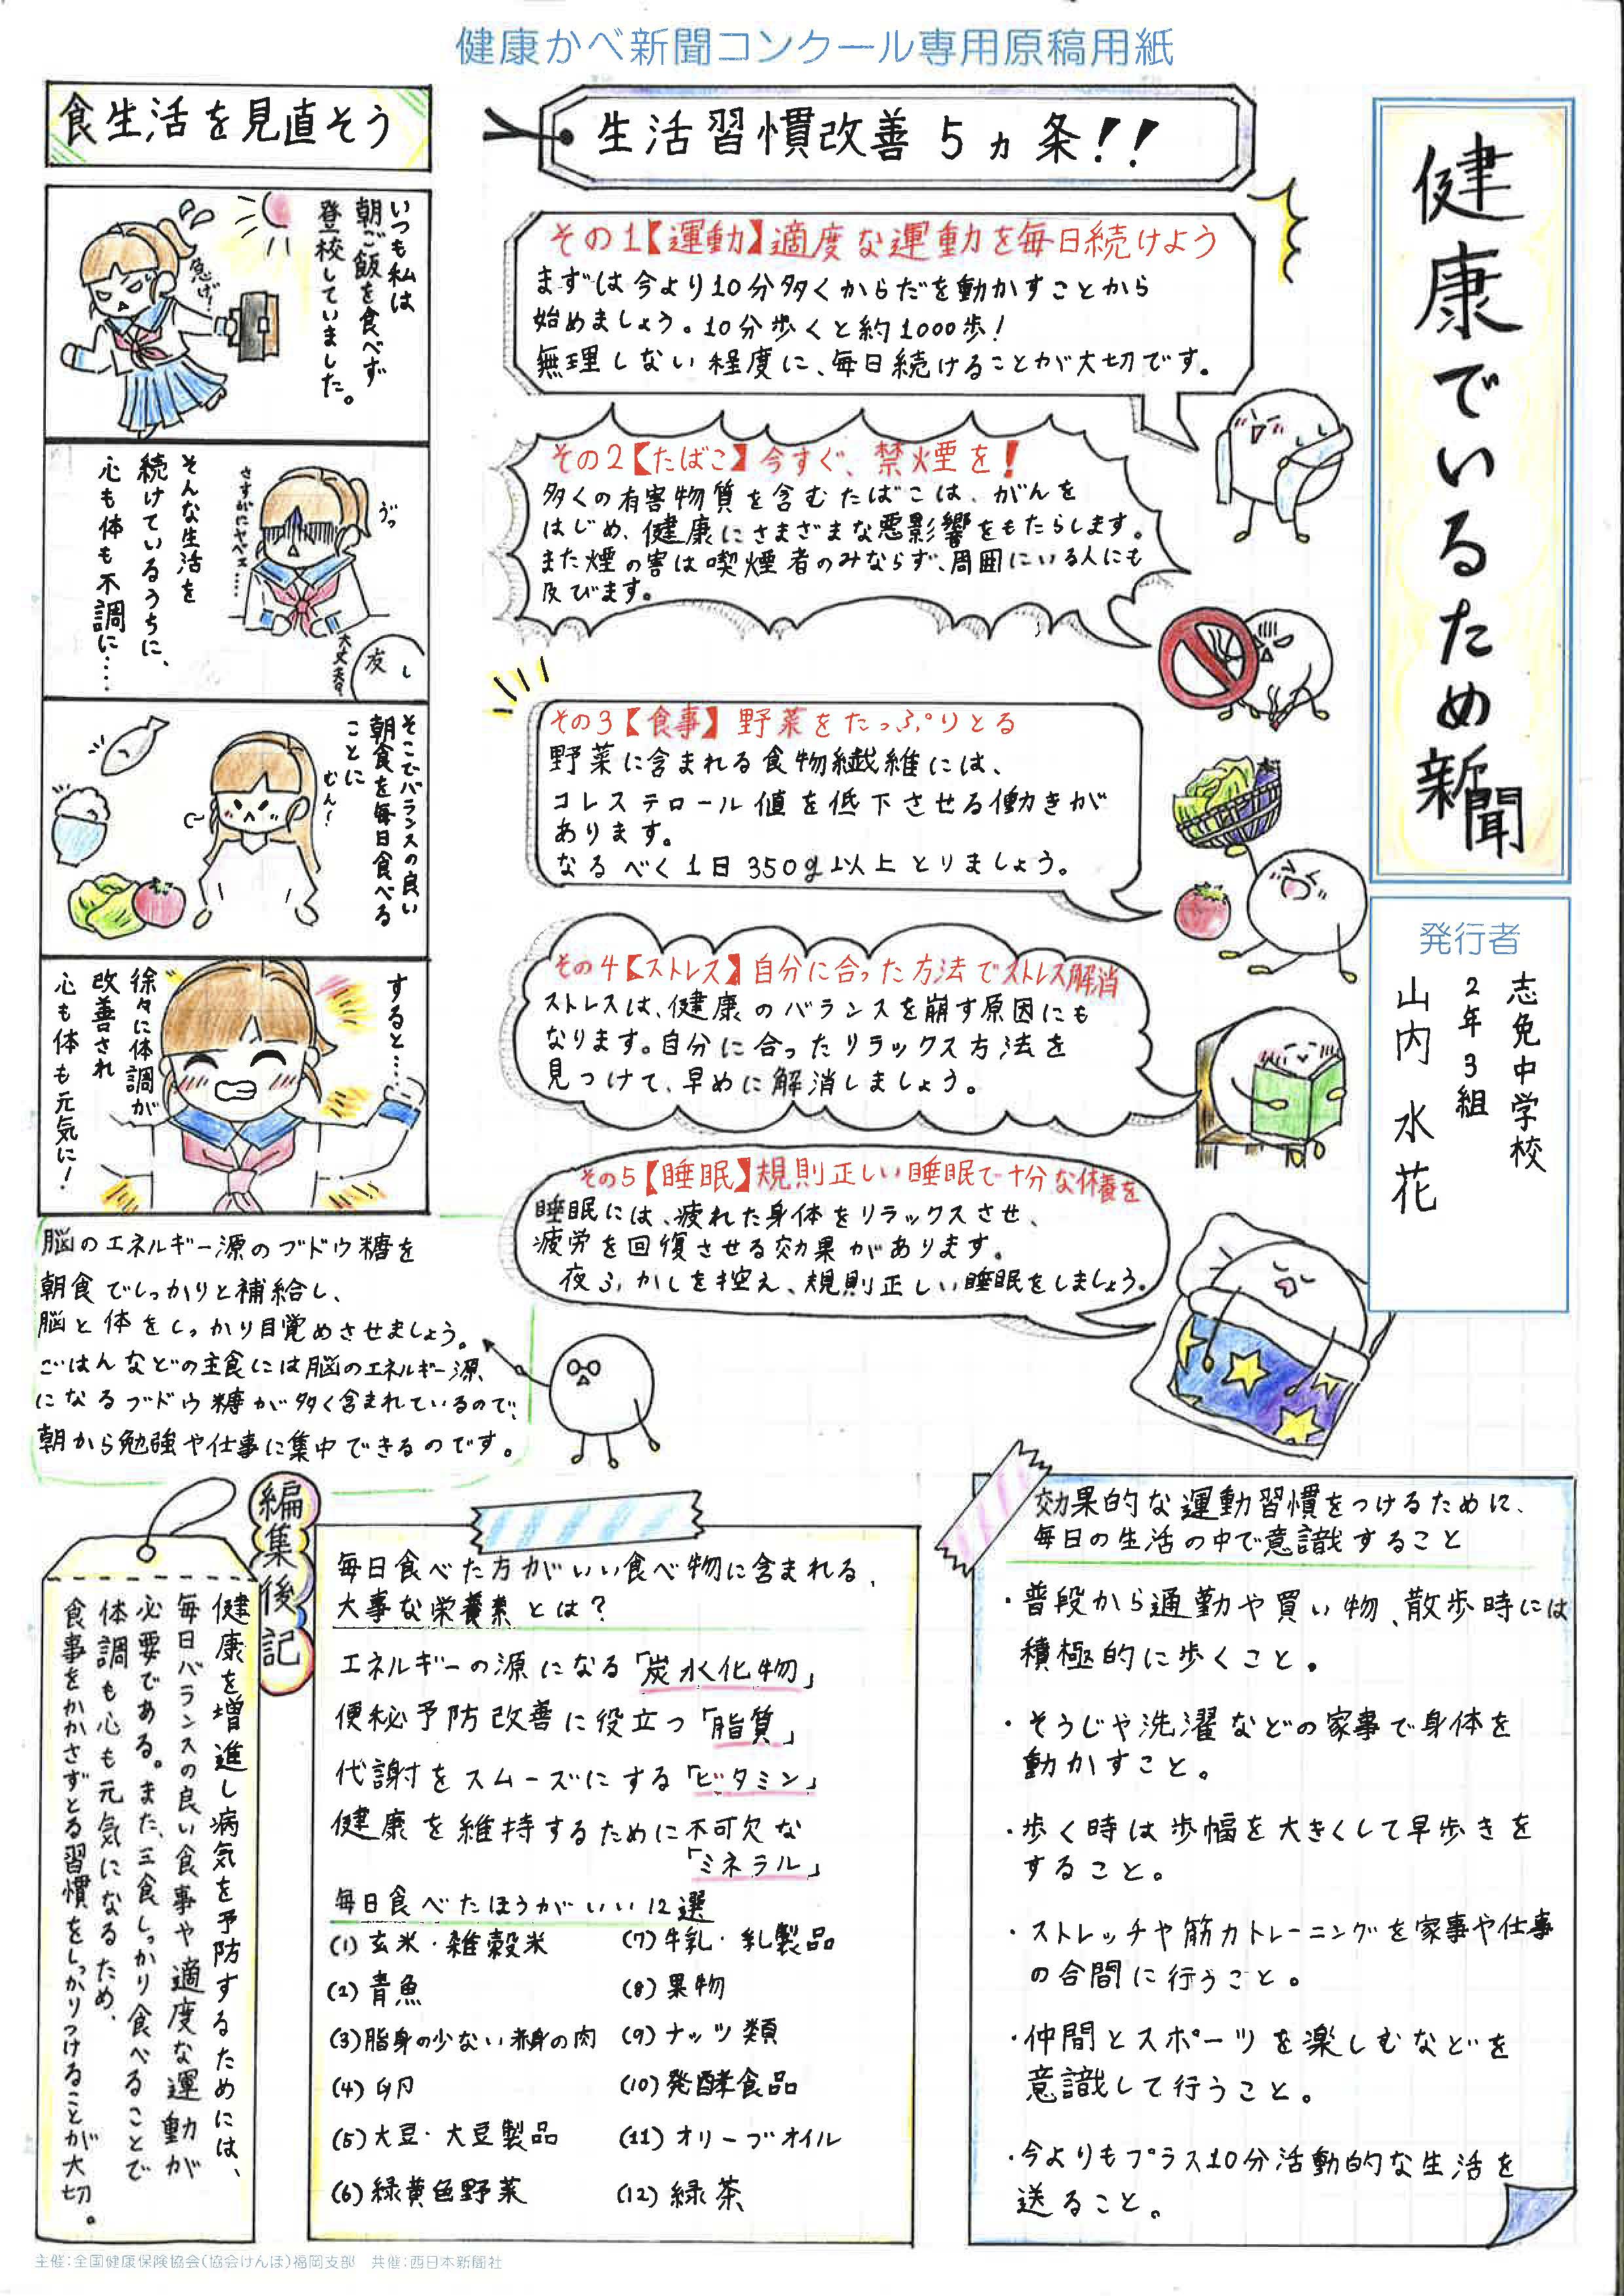 健康かべ新聞コンクール専用原稿用紙
健康でいるため新聞
発行者
志免中学校
2年3組
山内 水花
生活習慣改善5ヵ条!!
その1【運動】適度な運動を毎日続けよう
まずは今より10分多くからだを動かすことから
始めましょう。10分歩くと約1000歩!
無理しない程度に、毎日続けることが大切です。
その2【たばこ】今すぐ、禁煙を!
多くの有害物質を含むたばこは、がんを
はじめ、健康にさまざまな悪影響をもたらします。
また煙の害は喫煙者のみならず、周囲にいる人にも
及びます。
その3【食事】野菜をたっぷりとる
野菜に含まれる食物繊維には、
コレステロール値を低下させる働きが
あります。
なるべく1日350g以上とりましょう。
その4【ストレス】自分に合った方法でストレス解消
ストレスは、健康のバランスを崩す原因にも
なります。自分に合ったリラックス方法を
見つけて、早めに解消しましょう。
その5【睡眠】規則正しい睡眠で十分な休養を
睡眠には、疲れた身体をリラックスさせ、
疲労を回復させる効果があります。
夜ふかしを控え、規則正しい睡眠をしましょう。
食生活を見直そう
いつも私は
朝ご飯を食べず
登校していました。
急げ!
そんな生活を
続けているうちに、
心も体も不調に……
うっ
さすがにヤベェ……
大丈夫?
友
そこでバランスの良い
朝食を毎日食べる
ことに
むん!
すると…
徐々に体調が
改善され
心も体も元気に!
脳のエネルギー源のブドウ糖を
朝食でしっかりと補給し、
脳と体をしっかり目覚めさせましょう。
ごはんなどの主食には脳のエネルギー源、
になるブドウ糖が多く含まれているので、
朝から勉強や仕事に集中できるのです。
編集後記
健康を増進し病気を予防するためには、
毎日バランスの良い食事や適度な運動が
必要である。また、三食しっかり食べることで
体調も心も元気になるため、
食事をかかさずとる習慣をしっかりつけることが大切。
毎日食べた方がいい食べ物に含まれる、
大事な栄養素とは?
エネルギーの源になる「炭水化物」
便秘予防改善に役立つ「脂質」
代謝をスムーズにする「ビタミン」
健康を維持するために不可欠な
「ミネラル」
毎日食べたほうがいい12選
(1)玄米・雑穀米
(2)青魚
(3)脂身の少ない赤身の肉
(4)卵
(5)大豆・大豆製品
(6)緑黄色野菜
(7)牛乳・乳製品
(8)果物
(9)ナッツ類
(10)発酵食品
(11)オリーブオイル
(12)緑茶
効果的な運動習慣をつけるために、
毎日の生活の中で意識すること
・普段から通勤や買い物、散歩時には
積極的に歩くこと。
・そうじや洗濯などの家事で身体を
動かすこと。
・歩く時は歩幅を大きくして早歩きを
すること。
・ストレッチや筋力トレーニングを家事や仕事
の合間に行うこと。
・仲間とスポーツを楽しむなどを
意識して行うこと。
・今よりもプラス10分活動的な生活を
送ること。
主催:全国健康保険協会(協会けんぽ)福岡支部 共催:西日本新聞社